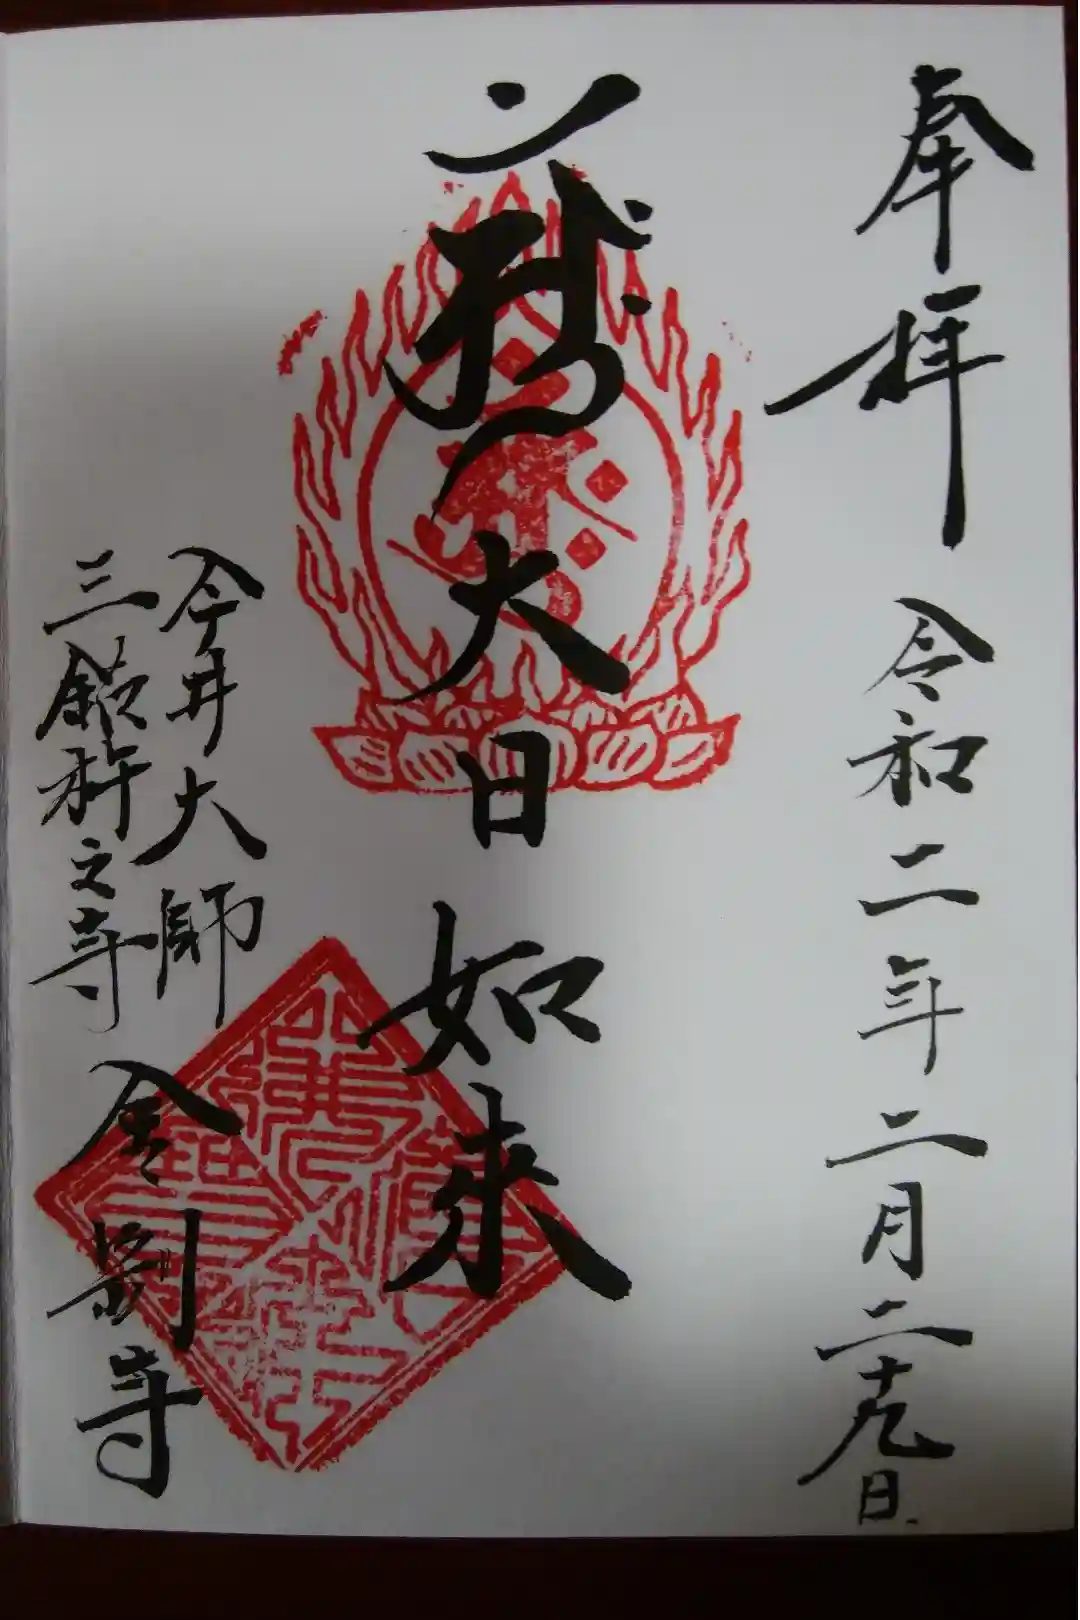 奉拝
令和二年二月二十九日
大日如来
今井大師
三鈷杵之寺
金剛寺